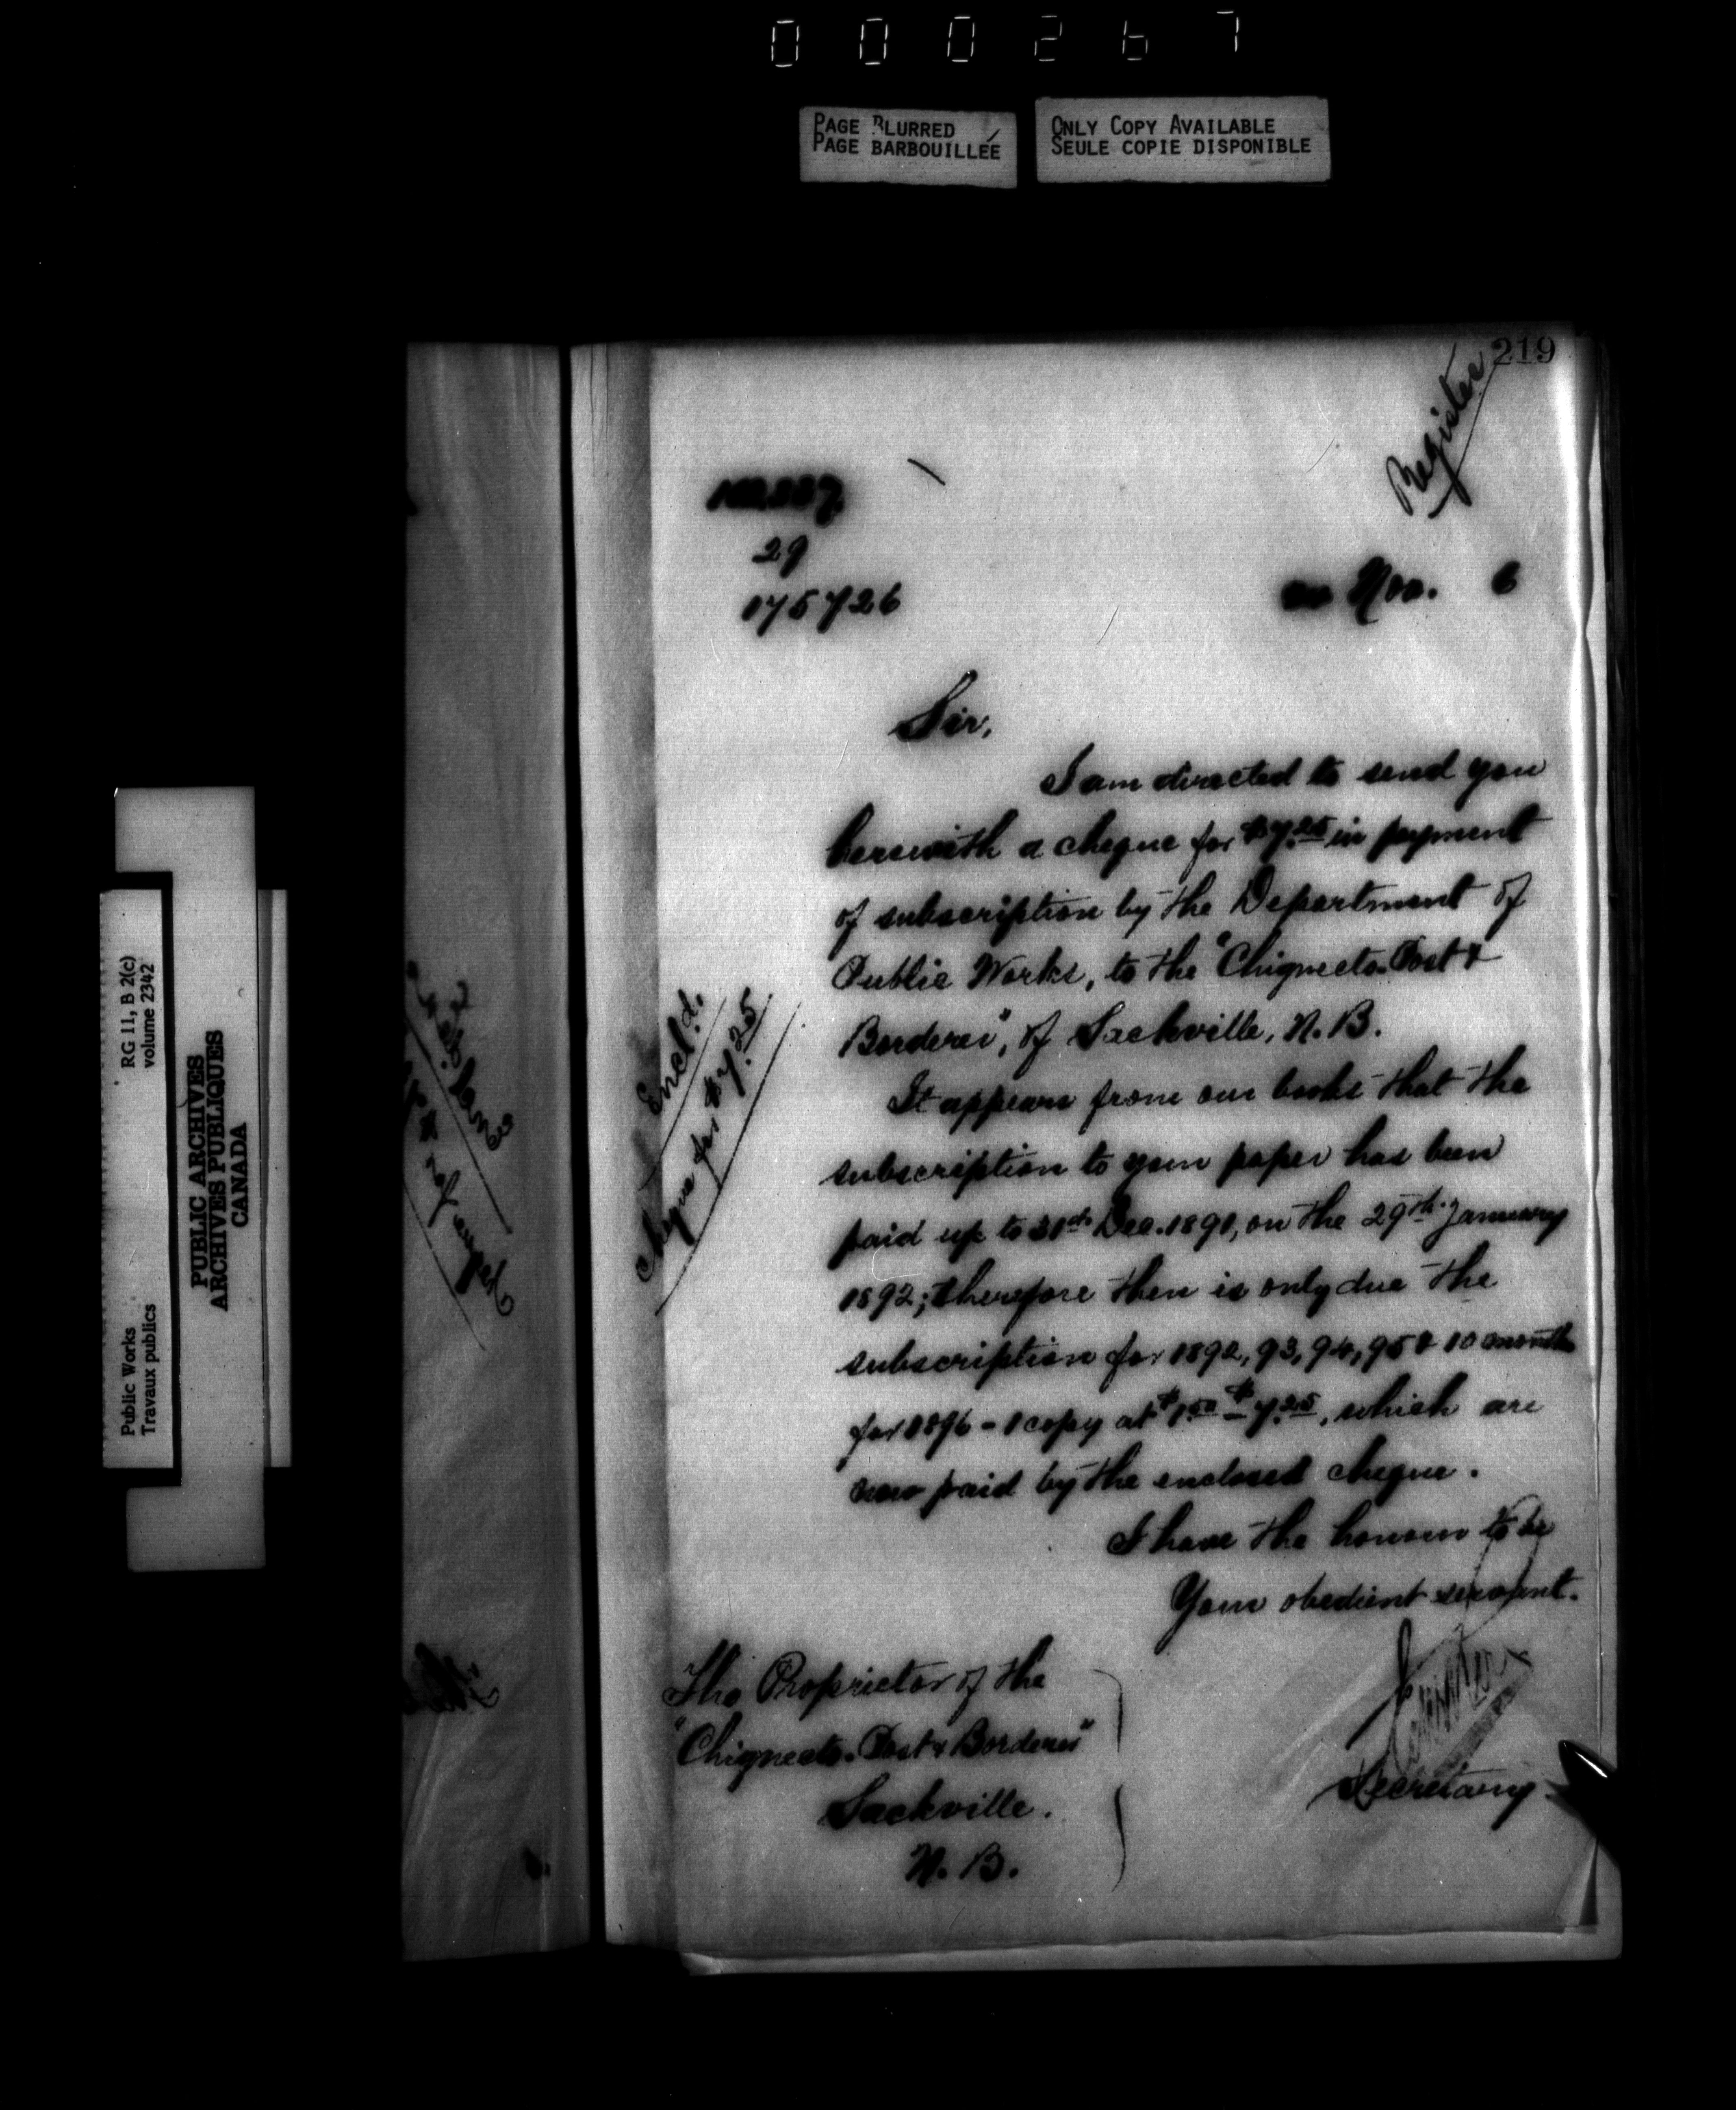 000267
PAGE BLURRED
PAGE BARBOUILLÉE
ONLY COPY AVAILABLE
SEULE COPIE DISPONIBLE
219
Register
29
175726
Nov. 6
Sir,
I am directed to send you
herewith a cheque for $7.25 in payment
of subscription by the Department of
Public Works, to the "Chignecto Post &
Borderer", of Sackville, N.B.
It appears from our books that the
subscription to your paper has been
paid up to 31st Dec. 1891, on the 29th January
1892; therefore there is only due the
subscription for 1892, 93, 94, 95 & 10 months
for 1896 - 1 copy at $1.50 - $7.25, which are
now paid by the enclosed cheque.
I have the honour to be
Your obedient servant.
Secretary
Encl'd.
Cheque for $7.25
The Proprietor of the
"Chignecto Post & Borderer"
Sackville.
N.B.
Public Works
Travaux publics
RG 11, B 2(c)
volume 2342
PUBLIC ARCHIVES
ARCHIVES PUBLIQUES
CANADA